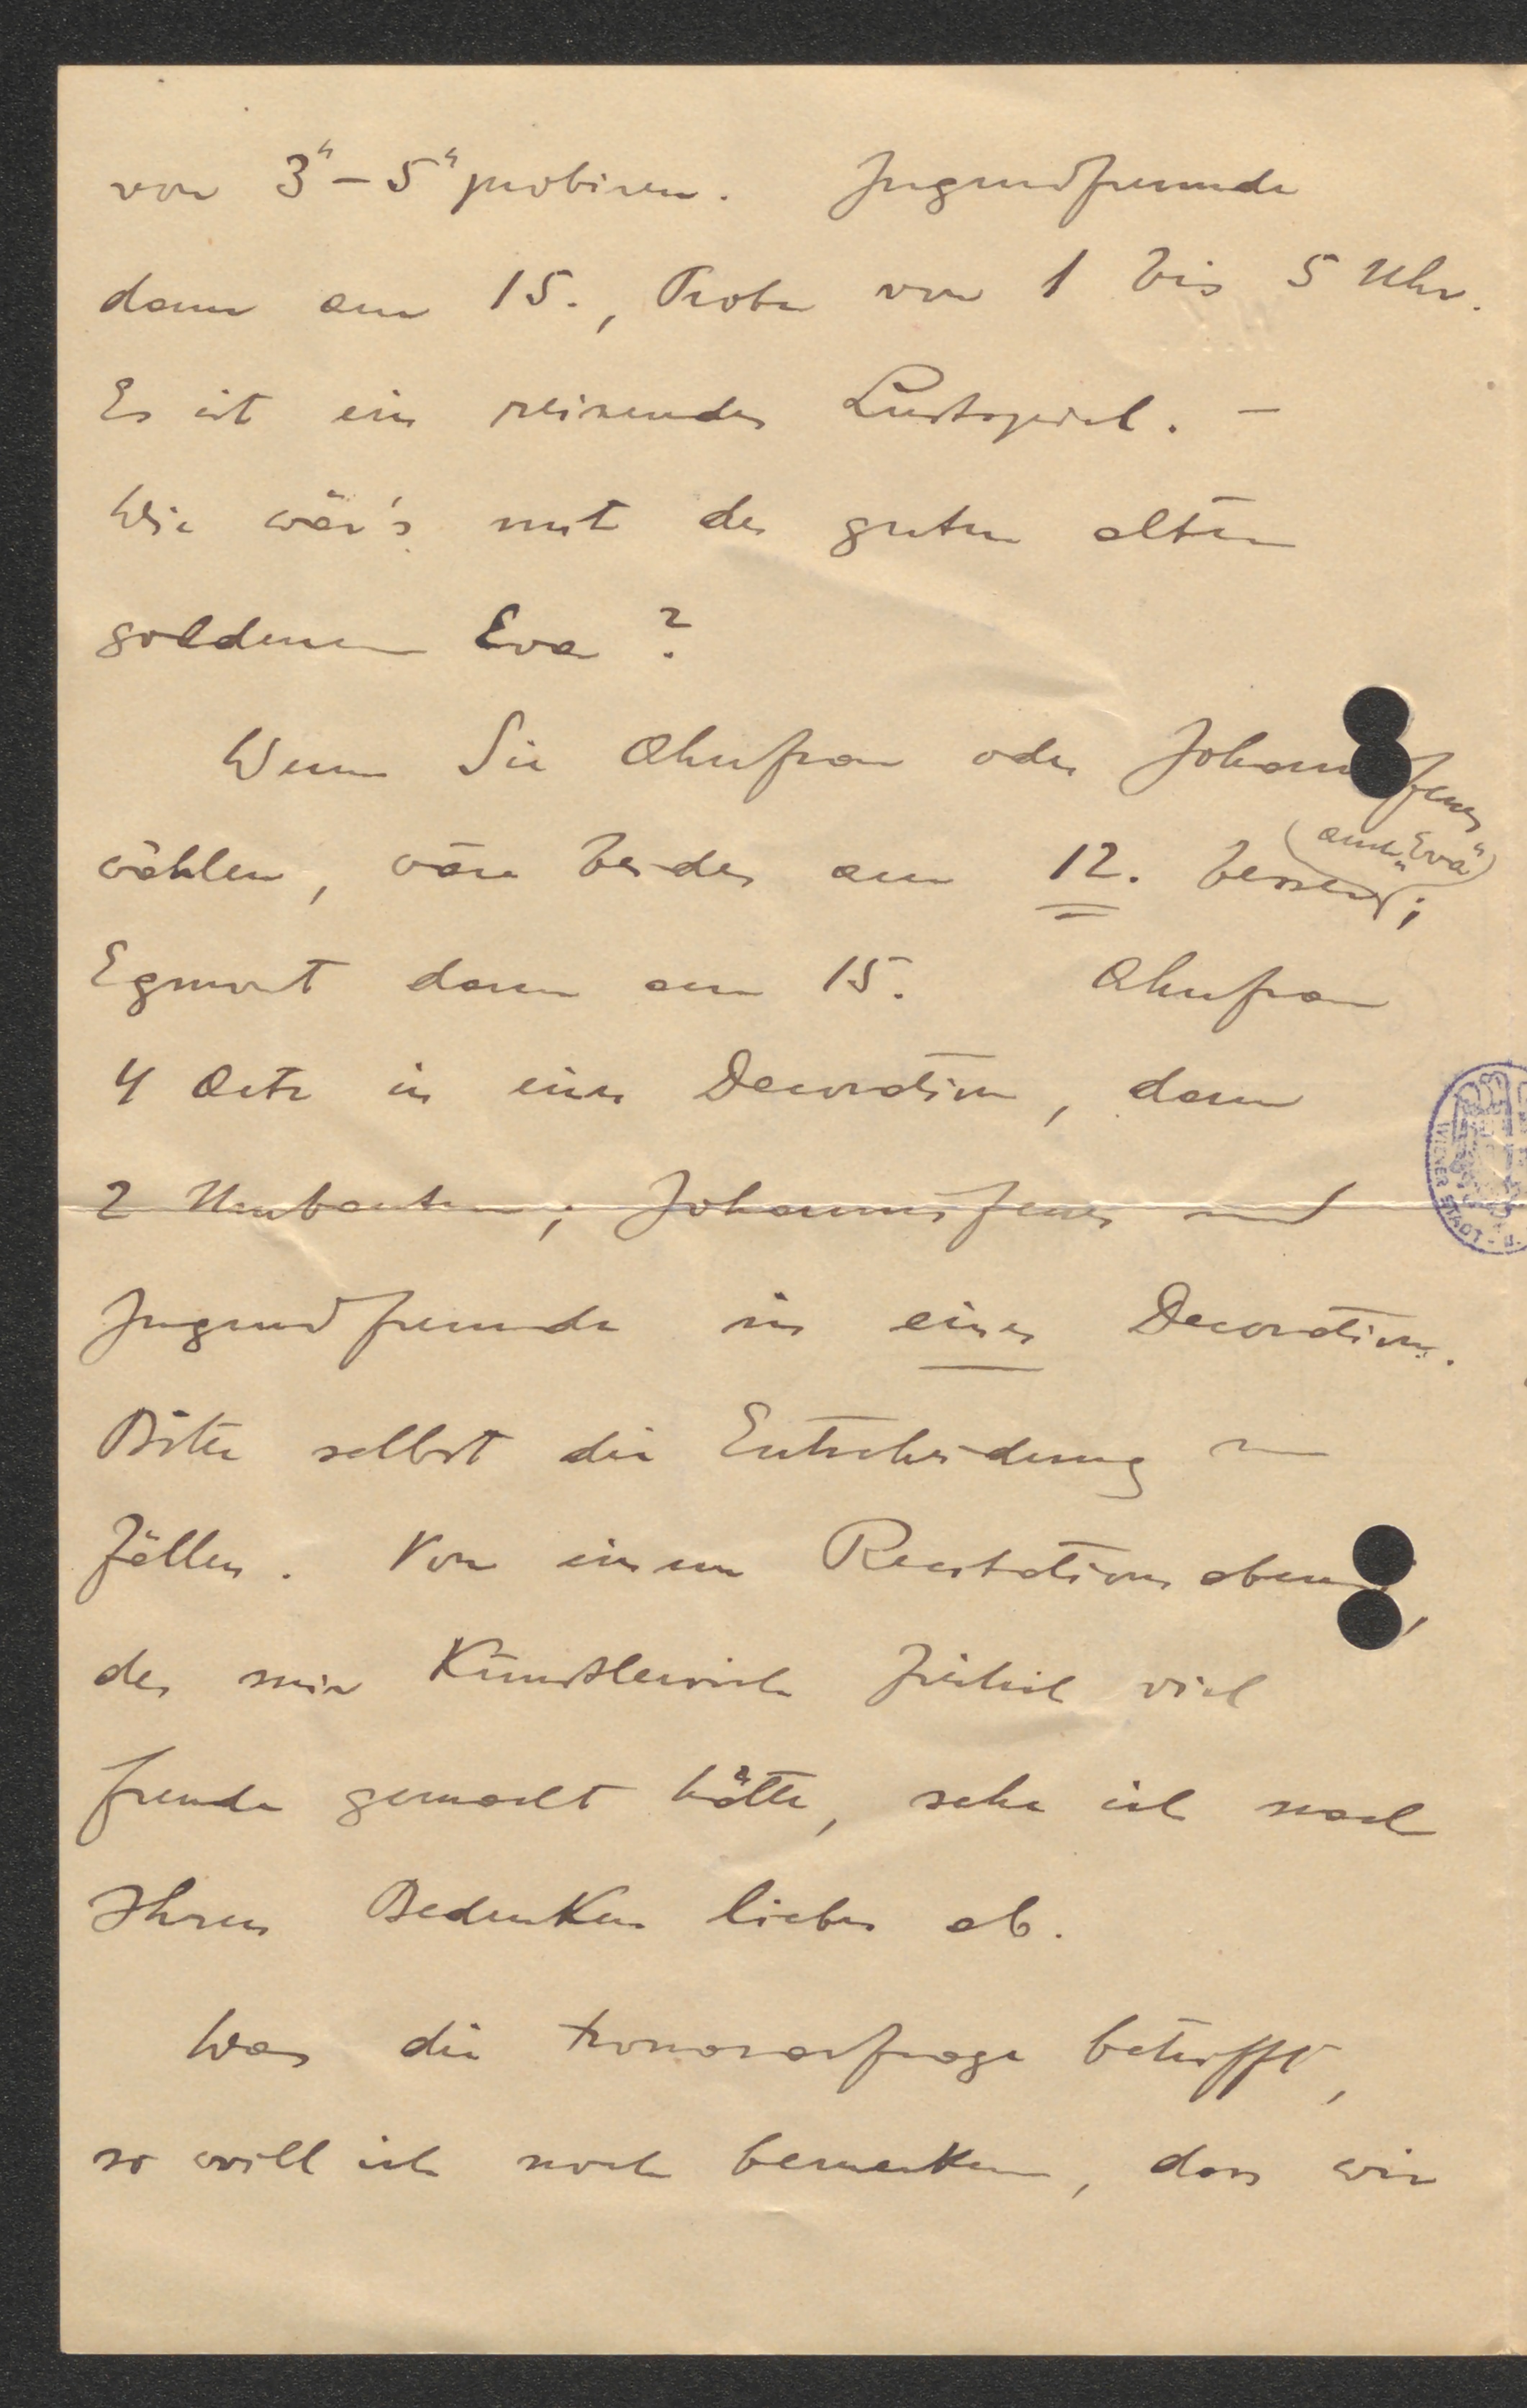 von 3h – 5h probiren. Jugendfreunde
dann am 15., Probe von 1 bis 5 Uhr.
Es ist ein reizendes Lustspiel. –
Wie wär's mit der guten alten
goldenen Eva?
Wenn Sie Ahnfrau oder Johannisfeuer
wählen, wäre beides am 12. besser (auch „Eva“);
Egmont dann am 15. Ahnfrau
4 Acte in einer Decoration, dann
2 Umbauten; Johannisfeuer und
Jugendfreunde in einer Decoration.
Bitte selbst die Entscheidung zu
fällen. Von einem Recitationsabend,
der mir künstlerisch viel
Freude gemacht hätte, sehe ich nach
Ihren Bedenken lieber ab.
Was die Honorarfrage betrifft,
so will ich noch bemerken, dass wir
WIENER STADT- U.